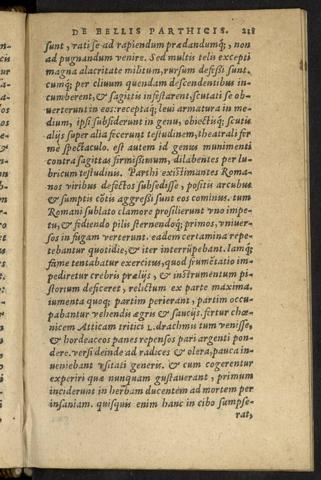 DE BELLIS PARTHICIS. 218
sunt, rati se ad rapiendum prædandumq́;, non
ad pugnandum venire. Sed multis telis excepti
magna alacritate militum, rursum defißi sunt.
cumq́; per cliuum quendam descendentibus in-
cumberent, & sagittis infestarent, scutati se ob-
uerterunt in eos: receptaq́; leui armatura in me-
dium, ipsi subsiderunt in genu, obiectisq́; scutis
alijs super alia fecerunt testudinem, theatrali for
me spectaculo. est autem id genus munimenti
contra sagittas firmißimum, dilabentes per lu-
bricum testudinis. Parthi existimantes Roma-
nos viribus defectos subsedisse, positis arcubus
& sumptis cōtis aggreßi sunt eos cominus. tum
Romani sublato clamore prosilierunt vno impe-
tu, & fidiendo pilis sternendoq́; primos, vniuer-
sos in fugam verterunt. eadem certamina repe-
tebantur quotidie, & iter interrūpebant. Iamq́;
fame tentabatur exercitus, quod frumētatio im-
pediretur crebris prælijs, & instrumentum pi-
storium deficeret, relictum ex parte maxima.
iumenta quoq; partim perierant, partim occu-
pabantur vehendis ægris & saucijs. fertur chœ-
nicem Atticam tritici L. drachmis tum venisse,
& hordeaceos panes repensos pari argenti pon-
dere. versi deinde ad radices & olera, pauca in-
ueniebant vsitati generis. & cum cogerentur
experiri quæ nunquam gustauerant, primum
inciderunt in herbam ducentem ad mortem per
insaniam. quisquis enim hanc in cibo sumpse-
rat,